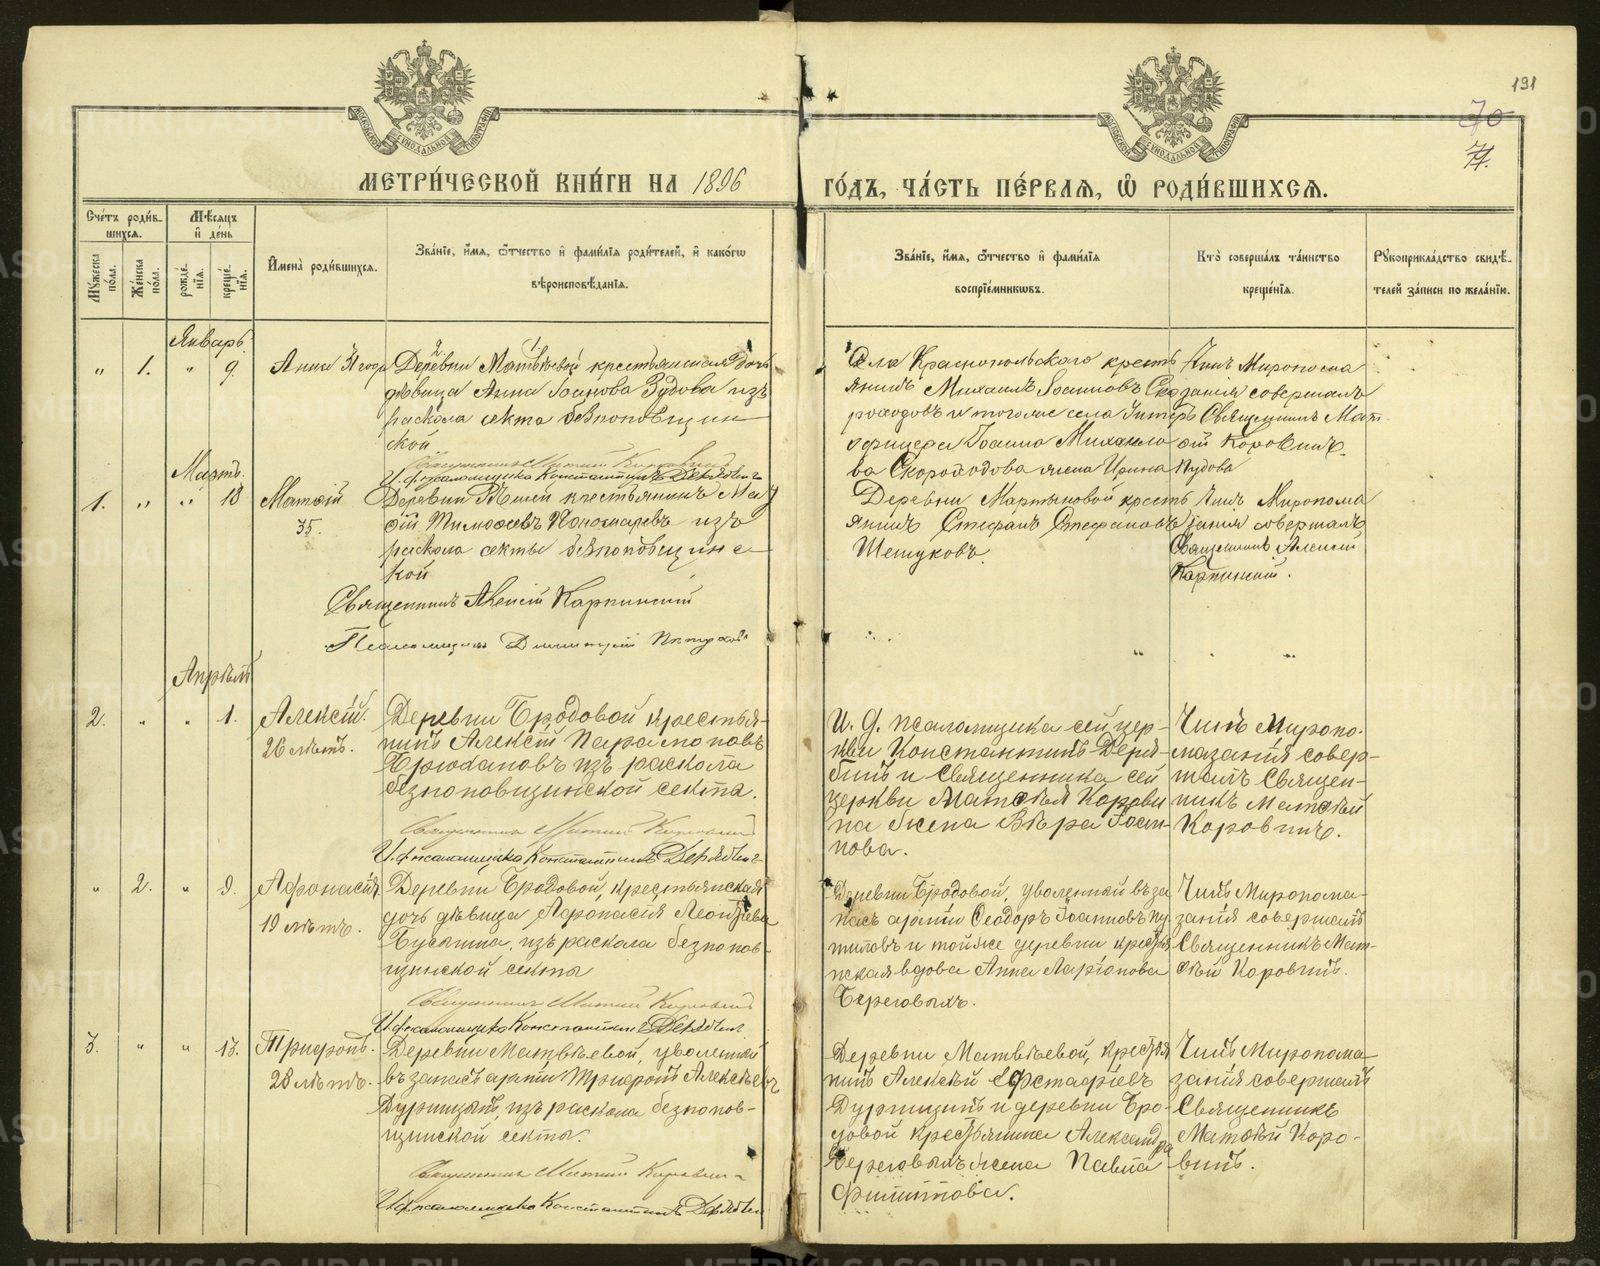 191
70
71.
МЕТРИ́ЧЕСКОЙ КНИ́ГИ НА 1896
ГО́ДЪ, ЧА́СТЬ ПЕ́РВАѦ, Ѡ҆ РОДИ́ВШИХСѦ.
Сче́тъ роди́в-
шихсѧ.
Мѣ́сѧцъ
и҆ де́нь
Мꙋ́жеска
по́ла.
Же́нска
по́ла.
рожде́-
нїѧ.
креще́-
нїѧ.
И҆мена̀ роди́вшихсѧ.
Зва́нїе, и҆́мѧ, ѻ҆́тчество и҆ фами́лїѧ роди́телей, и҆ како́гѡ
вѣроисповѣ́данїѧ.
Зва́нїе, и҆́мѧ, ѻ҆́тчество и҆ фами́лїѧ
воспрїе́мникѡвъ.
Кто̀ соверша́лъ та́инство
креще́нїѧ.
Рꙋкоприкла́дство свидѣ́-
телей за́писи по жела́нїю.
Январь
" 1. " 9.
Анна 31 года
Деревни Матвѣевой крестьянская дочь
дѣвица Анна Іоанова Зудова изъ
раскола секта безпоповщин
ской
И. ф. псаломщика Константинъ Дерябинъ
Села Краснопольскаго кресть
янинъ Михаилъ Іоанновъ Ско
роходовъ и тогоже села Унтеръ
офицера Іоанна Михаило
ва Скороходова жена Ирина
Чинъ Миропома
занія совершалъ
Священникъ Мат
ѳій Коровинъ.
Мартъ.
1. " " 18
Матѳій
35.
Деревни крестьянинъ Мат
ѳій Тимоѳеевъ Пономаревъ изъ
раскола секты безпоповщинс
кой
Священникъ Алексій Карпинский
Псаломщикъ Димитрий
Деревни Мартыновой кресть
янинъ Стефанъ Стефановъ
Шешуковъ.
Чинъ Миропома
занія совершалъ
Священникъ Алексій
Карпинский.
Апрѣль
2. " " 1.
Алексій.
26 лѣтъ.
Деревни Бродовой крестья-
нинъ Алексій Парамоновъ
Хрюкановъ изъ раскола
безпоповщинской секты.
И. ф. псаломщика Константинъ Дерябинъ
И. д. псаломщика сей цер-
кви Константинъ Деря-
бинъ и Священника сей
церкви Матѳія Корови
на жена Вѣра Іоан-
нова.
Чинъ Миропо-
мазанія совер-
шалъ Священ-
никъ Матѳій
Коровинъ.
" 2. " 9.
Афонасія
19 лѣтъ.
Деревни Бродовой, крестьянская
дочь дѣвица Афонасія Леонтіева
Бусыгина, изъ раскола безпопов-
щинской секты
И. ф. псаломщика Константинъ Дерябинъ
Деревни Бродовой, уволенный въ за
пасъ арміи Ѳеодоръ Іоанновъ Пу-
тиловъ и тойже деревни крестья
нская вдова Анна Ларіонова
Береговыхъ.
Чинъ Миропома-
занія совершалъ
Священникъ Мат-
ѳій Коровинъ.
3. " " 13.
Трифонъ.
28 лѣтъ.
Деревни Матвѣевой, уволенный
въ запасъ арміи Трифонъ Алексѣевъ
Дурницынъ, изъ раскола безпопов-
щинской секты.
И. ф. псаломщика Константинъ Дерябинъ
Деревни Матвѣевой, крестья
нинъ Алексѣй Ефстафіевъ
Дурницинъ и деревни Бро-
довой крестьянина Александра
Береговыхъ жена Павла
Филиппова.
Чинъ Миропома-
занія совершалъ
Священникъ
Матѳій Коро-
винъ.
METRIKI.GASO-URAL.RU